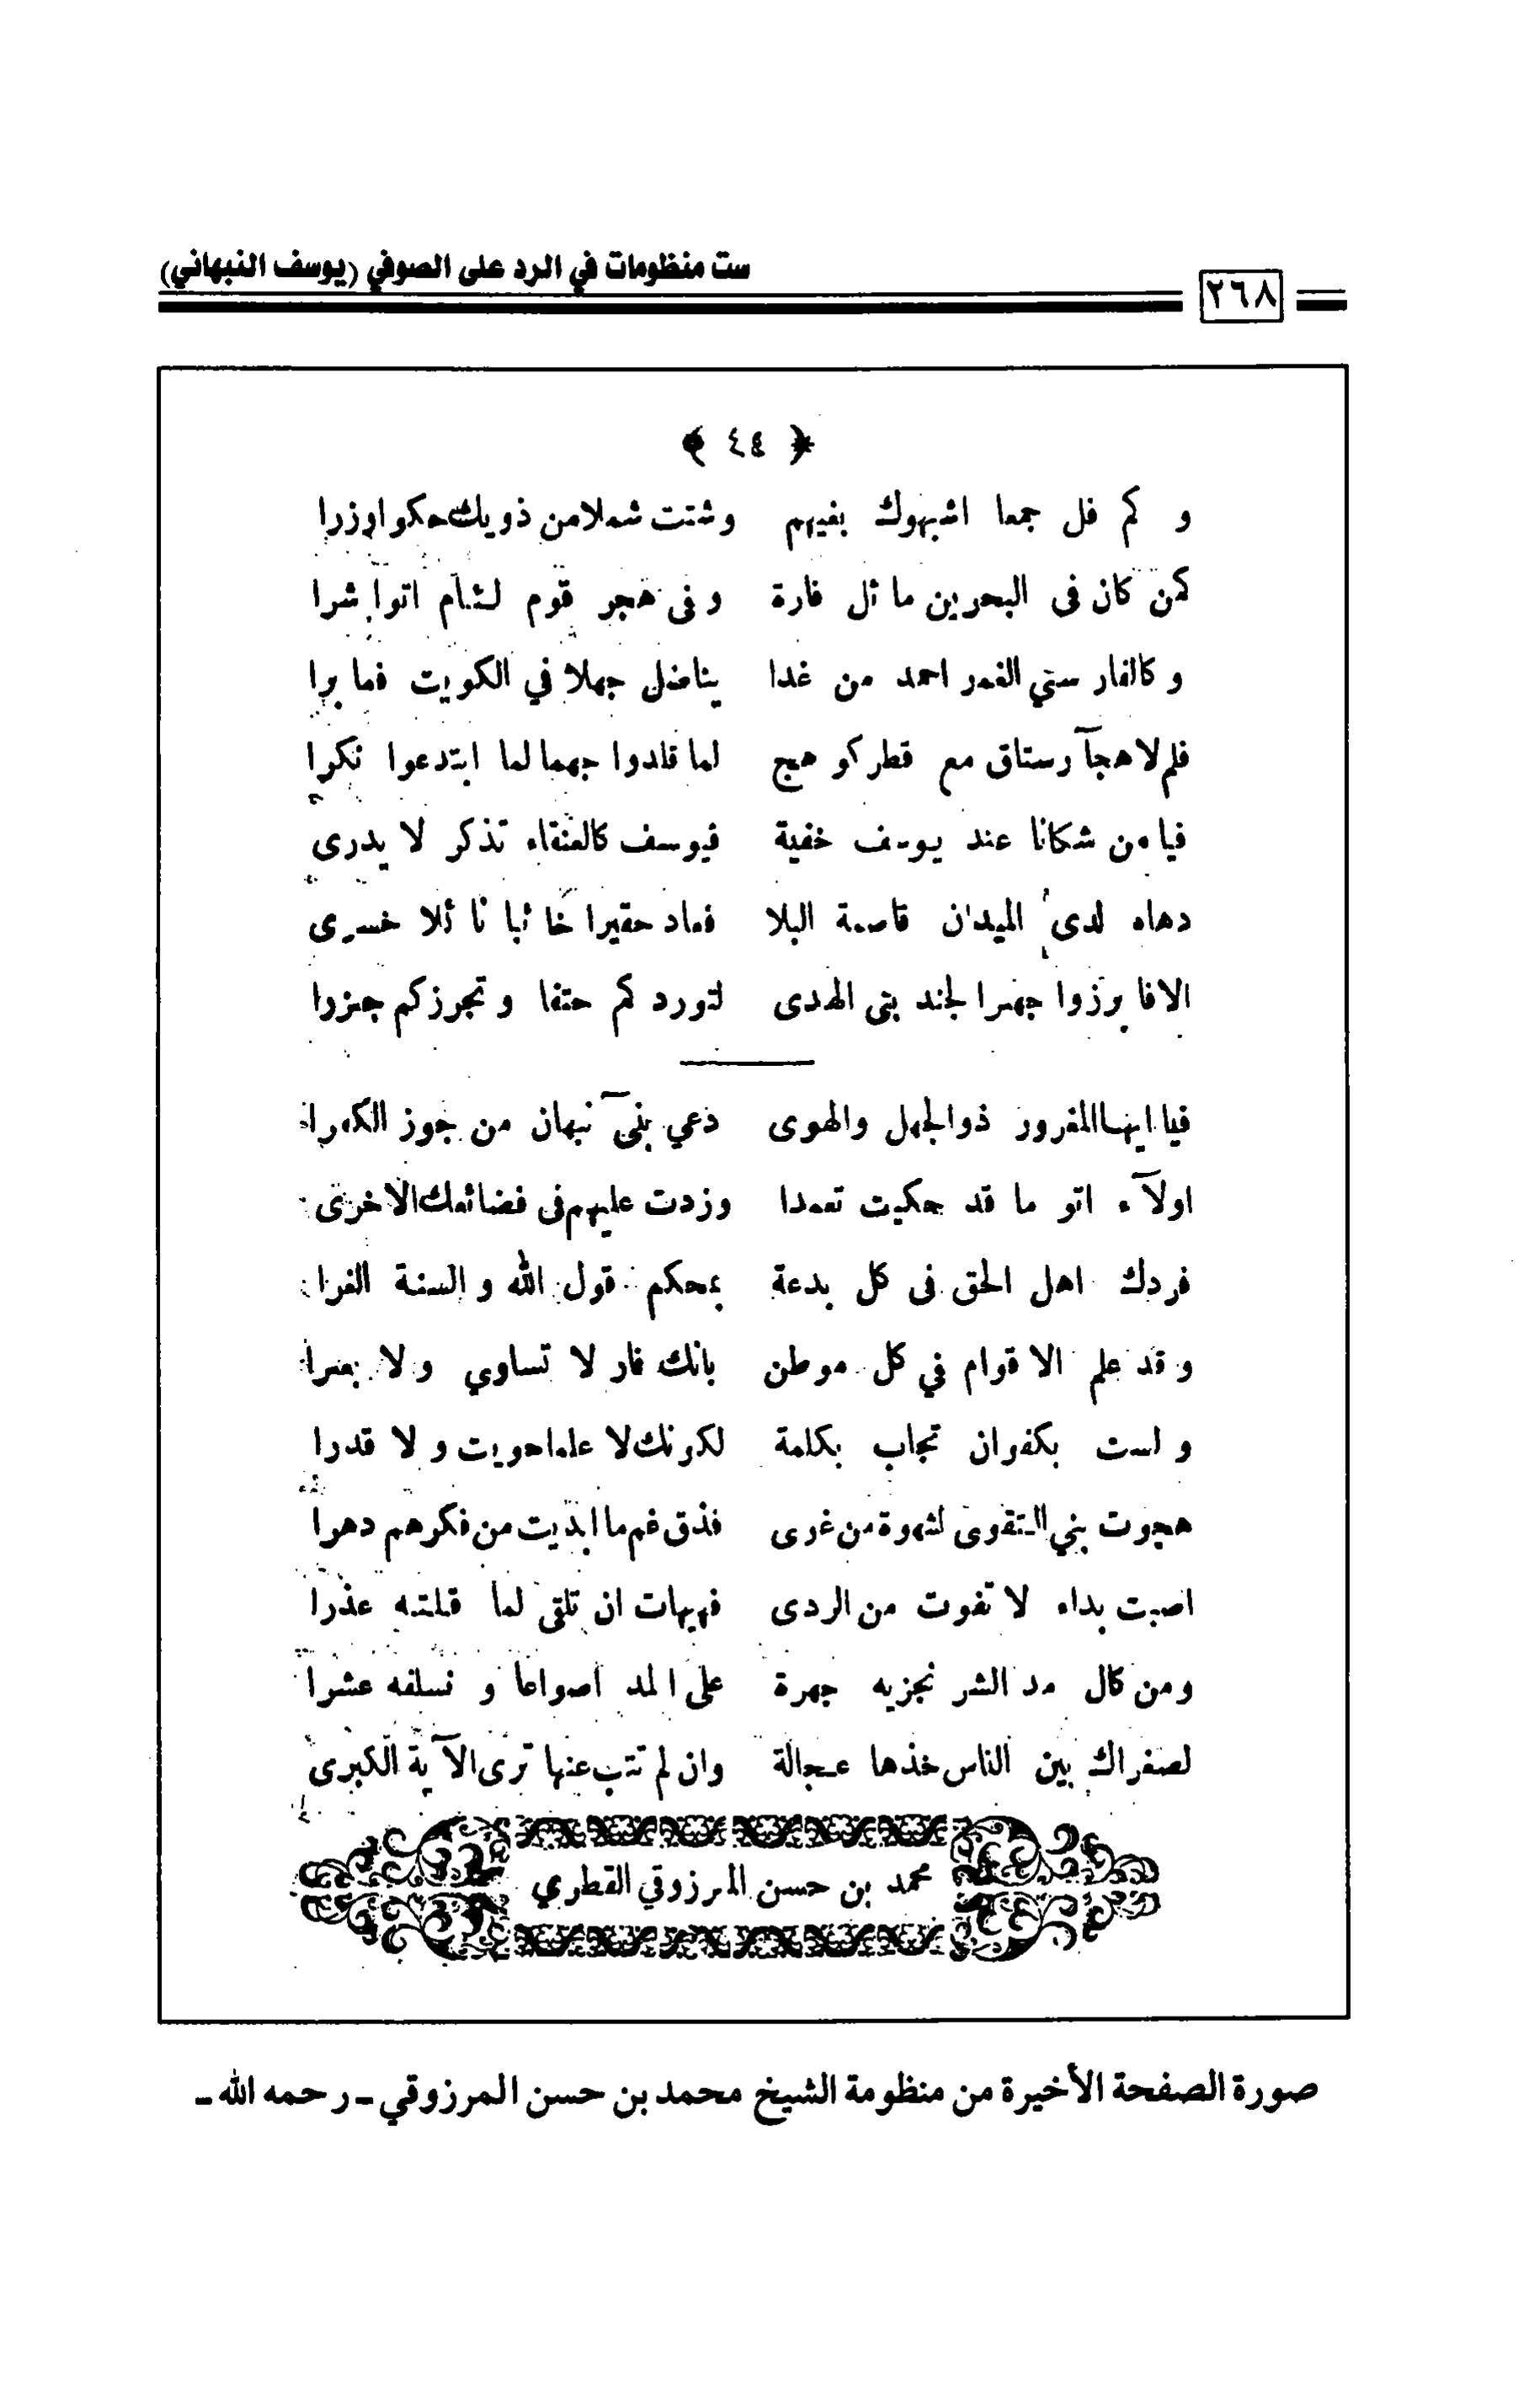 ست منظومات في الرد على الصوفي (يوسف النبهاني)
٢٦٨
﴿ ٤٤ ﴾
و كم فل جمعا اشبهوك بغيهم وشتت شملا من ذويك حكوا وزرا
كمن كان فى البحرين ماثل فارة وفى هجر قوم لئام اتوا شرا
وكالفار سني الغمر احمد من غدا يناضل جهلا في الكويت فما برا
فلم لا هجآ رستاق مع قطر كو هيج لما قلدوا جهما لما ابتدعوا نكرا
فيا من شكانا عند يوسف خفية فيوسف كالعنقاء تذكر لا يدرى
دهاه لدى الميدان قاصمة البلا فعاد حقيرا خائبا نائلا خسرى
الا فابرزوا جهرا لجند بنى الهدى لتورد كم حتفا وتجرزكم جزرا
فيا ايها المغرور ذو الجهل والهوى دعي بنى نبهان من جوز الكفرا
اولآء اتو ما قد حكيت تعمدا وزدت عليهم فى فضائعك الاخرى
فردك اهل الحق فى كل بدعة بمحكم قول الله والسنة الغرا
وقد علم الاقوام في كل موطن بانك فار لا تساوي ولا بعرا
ولست بكفوان تجاب بكلمة لكونك لا علما حويت ولا قدرا
هجوت بني التقوى لشهوة من غرى فذق غم ما ابديت من فكرهم دهرا
اصبت بداء لا تفوت من الردى فهيهات ان تلقى لما قلته عذرا
ومن كال مد الشر نجزيه جهرة على المد اصواعا و نسلفه عشرا
لصفراك بين الناس خذها عجالة وان لم تتب عنها ترى الآية الكبرى
محمد بن حسن المرزوقي القطري
صورة الصفحة الأخيرة من منظومة الشيخ محمد بن حسن المرزوقي ـ رحمه الله ـ